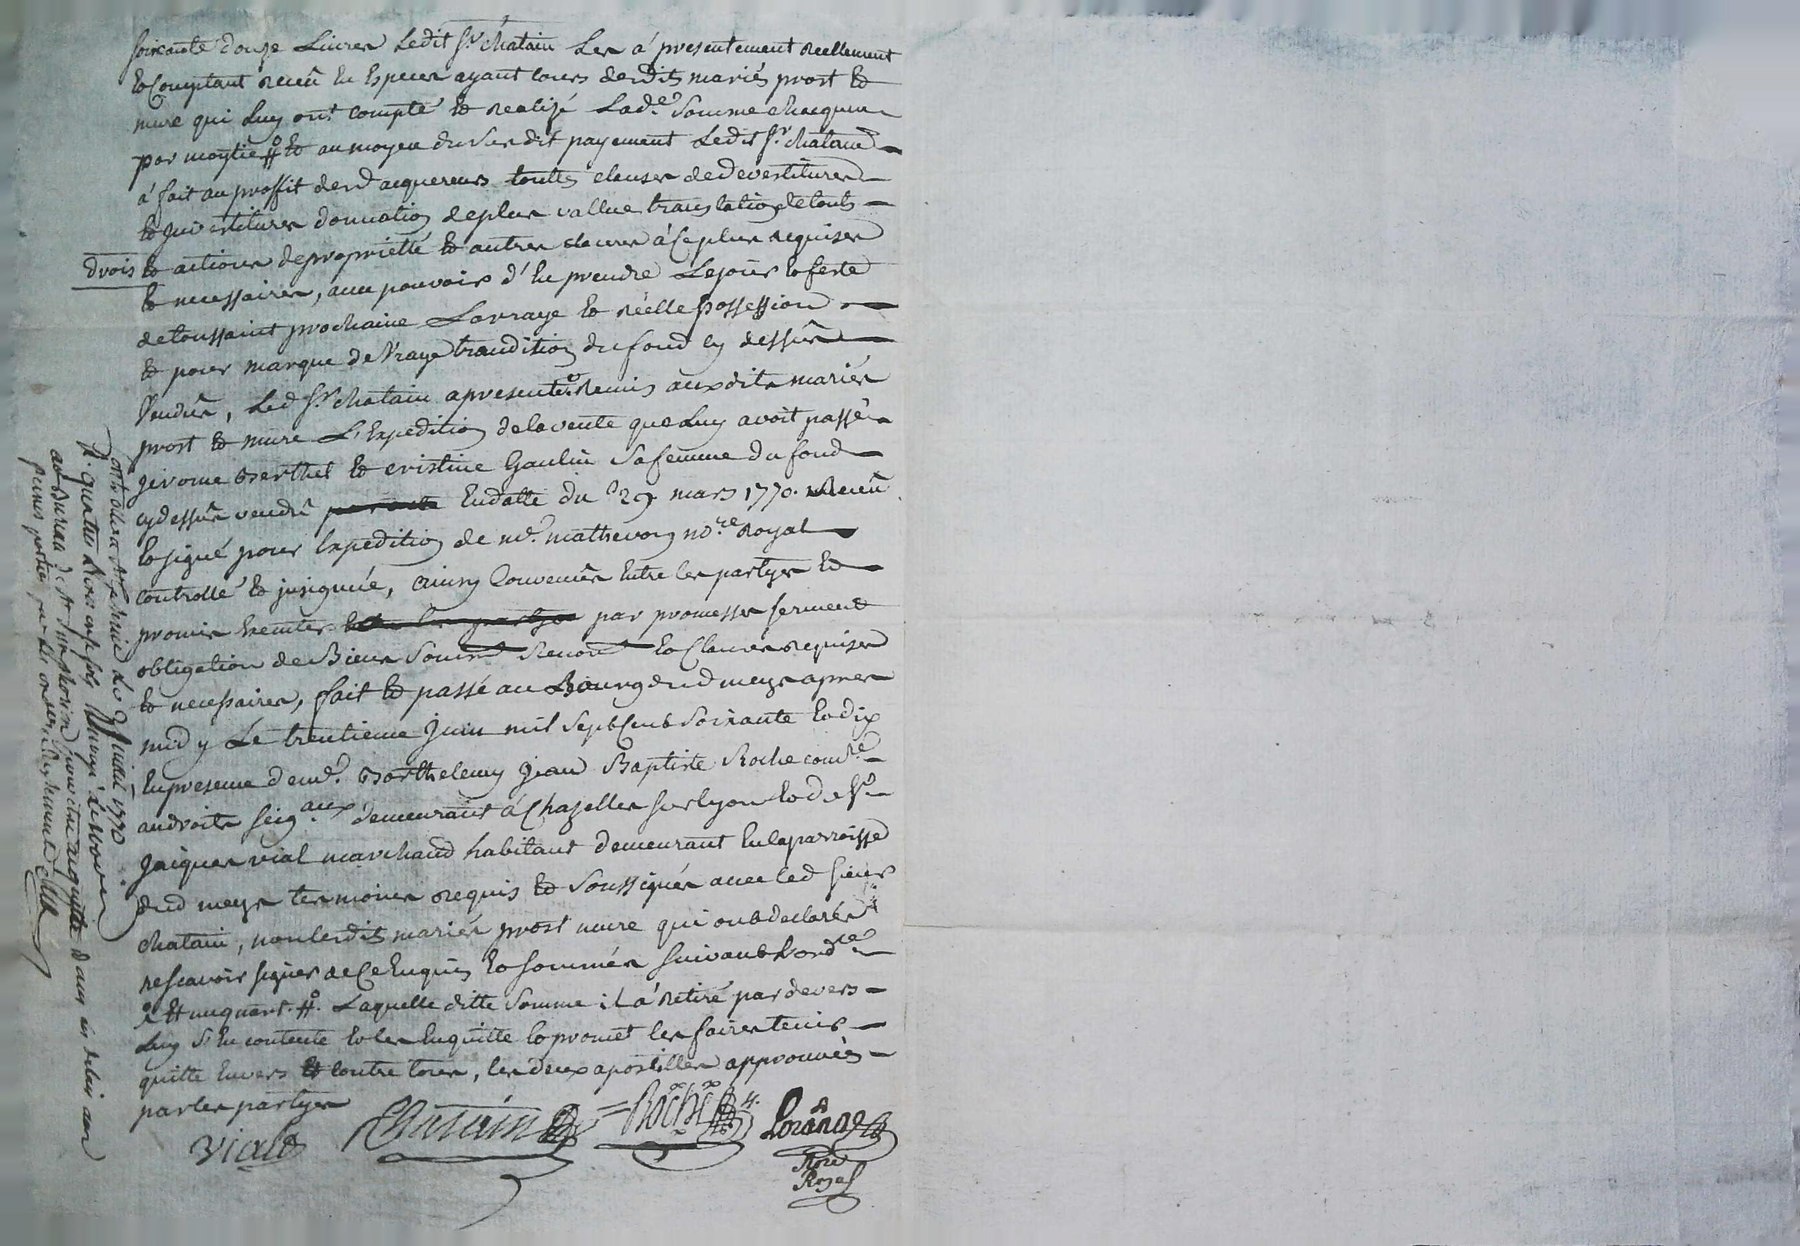 soixante douze Livres Ledit Sr. Chatain Les a presentement reellement
et Comptant receu En Especes ayant cours desdits mariés prost et
mure qui Luy ont compté et realizé Lade. Somme chacquun
par moytié # et au moyen du Susdit payement Ledit Sr. chatain
à fait au proffit desd acquereurs touttes clauses de devestitures
et Jnvestitures donnation de plus vallue translation de touts
droits et actions de proprietté et autres clauses à Ce plus requises
et necessaires, avec pouvoir d'En prendre Le jour et feste
de toussaint prochaine La vraye et réelle possession
et pour marque de Vraye tradition du fond cy dessûs
Vendûs, Led Sr. chatain a presentt. Remis auxdits mariés
prost et mure L'Expedition de la vente que Luy avoit passé
jerome Berthet et cristine Gaulin sa femme du fond
cy dessûs vendû En datte du 29 mars 1770. Receüe
et signé pour Expedition de me. mathevon nore. Royal
controllé et jnsignué, ainsy Convenus Entre les partyes et
promis par promesses serment
obligation de Biens Soumn. Renonn. et Clauses requises
et necessaires, fait et passé au Bourg dud meys apres
midy Le trentieme juin mil Sept Cent Soixante et dix
En presence de me. Barthelemy jean Baptiste Roche comre.
aux droits seigaux. demeurant à Chazelles sur lyon et de Sr.
jacques vial marchand habitant demeurant En la parroisse
dud meys temoins requis et Soussignés avec led Sieur
chatain, non lesdits mariés prost mure qui ont declarés
ne scavoir signer de Ce Enquis et sommés suivant L'ordce.
Laquelle ditte Somme il a retiré par devers
Luy s'En contente et les En quitte et promet les faires tenir
quitte Envers et Contre tous, les deux apostilles approuvées
par les partyes
Vial
Chatain
Roche
Lorange
Nore
Royal
controllé a St. le Juillet 1770
R. quatre livres onze sols
au Bureau de St. Simphorien pour etre acquitté dans un delais aux
peines portées par les